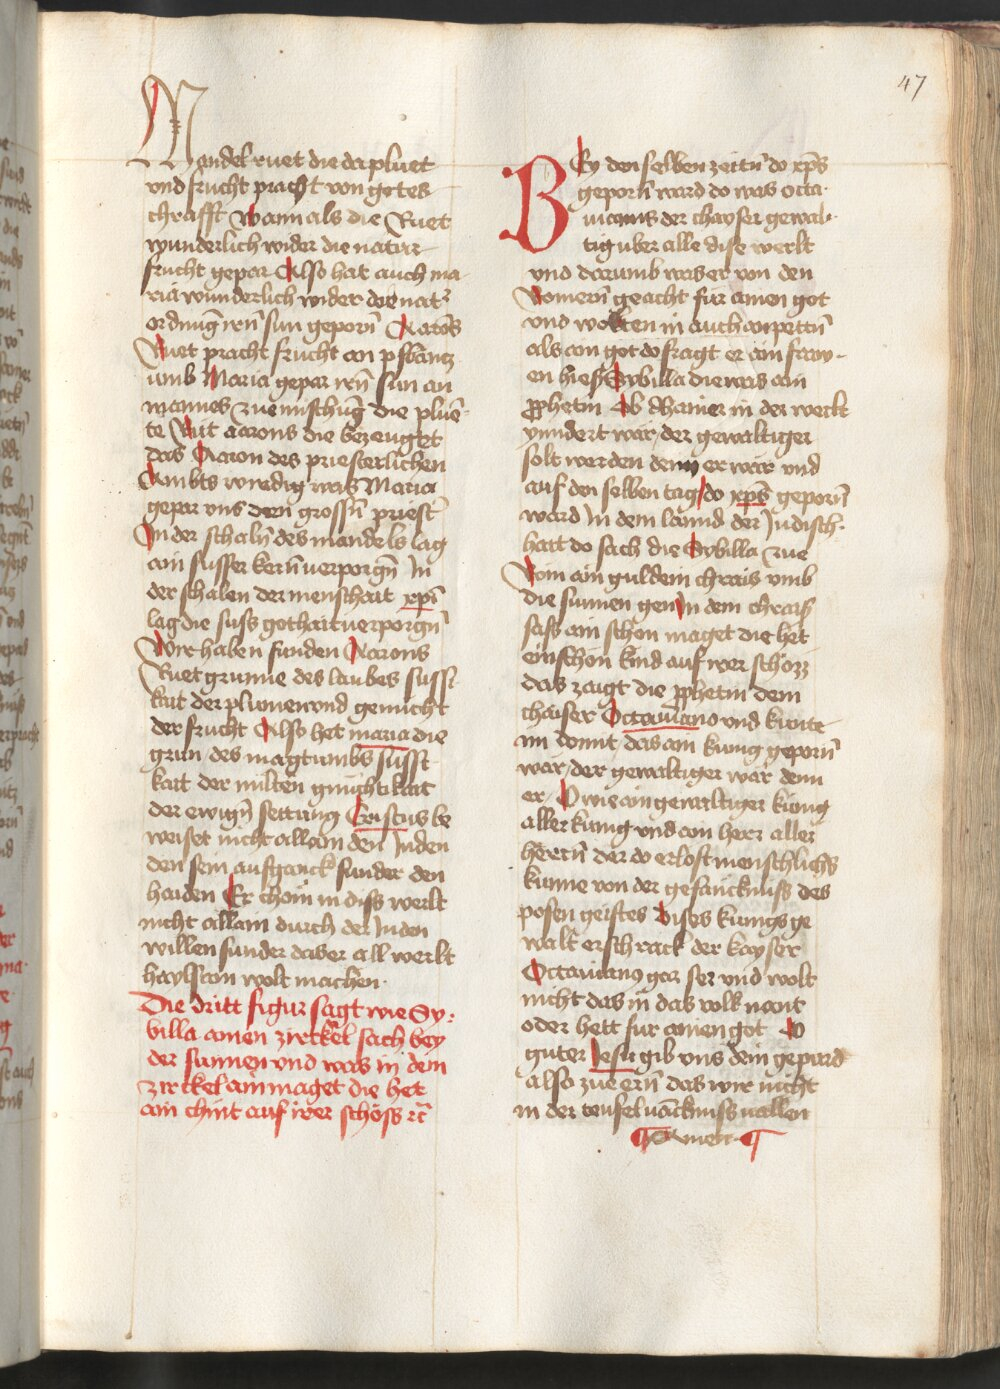 47
Mandel ruet die da pluet
vnd frucht pracht von gotes
chrafft Wann als die Ruet
wunderlich wider die natur
frucht gepar Also hat auch ma-
ria wunderlich wider die nat²
ordnūg irn̄ sun geporn̄ Aarōs
Ruet pracht frucht on pflāncz
umb Maria gepar irn̄ sun an
mannes zuemischūg die plue-
te Ruet aarons die bezeuget
das Aaron des priesterlichen
Ambts wirdig was Maria
gepar vns den grossn̄ priest̄
In der schaln̄ des mandels lag
ain susser kern̄ verporgn̄ In
der schalen der menschait xp̄i
lag die suss gothait verporgn̄
Wir haben funden Aarons
Ruet grunne des laubes susst-
kait der plumen vnd genucht
der frucht Also het maria die
grun des magtumbs susst-
kait der milten gnuchtikait
der ewign̄ settung Cristus be
weiset nicht allain den Juden
den sein aufganck sunder den
haiden Er chom in diss werlt
nicht allain durch der Juden
willen sunder daz er all werlt
haylsam wolt machen.
Die dritt figur sagt wie Sy-
billa ainen zirckel sach bey
der sunnen vnd was in dem
zirckel ain maget die het
ain chint auf irer schoss rc̄
Bey den selben zeitn̄ do xp̄s
geporn̄ ward do was octa-
uianus der chayser gewal-
tig uber alle dise werlt
vnd darumb was er von den
Romern̄ geacht fur ainen got
vnd wolten in auch anpettn̄
als ain got do fragt er ain fraw-
en hiess Sybilla die was ain
p̄phetin Ob dhainer in der werlt
ynndert wär der gewaltiger
solt werden denn er wär vnd
auf den selben tag do xp̄s geporn̄
ward In dem lannd der Judisch-
hait do sach die Sybilla zue
Rom ain guldein chrais vmb
die sunnen gen In dem chraiss
sass ain schon maget die het
ein schon kind auf irer schozz
das zaigt die p̄phetin dem
chaiser Octauiano vnd kunte
im domit das ain kunig geporn̄
wär der gewaltiger wär denn
er O wie ain gewaltiger kunig
aller kunig vnd ain herr aller
herrn̄ der do erlost menschlichs
kunne von der gefanckniss des
posen geistes Dises kunigs ge
walt erschrack der kayser
Octauianus gar ser vnd wolt
nicht das in das volk nant
oder hett fur ainen got O
guter Jesu gib vns dein gepurd
also zue ern̄ das wir nicht
in der teufel vanckniss vallen
Amen